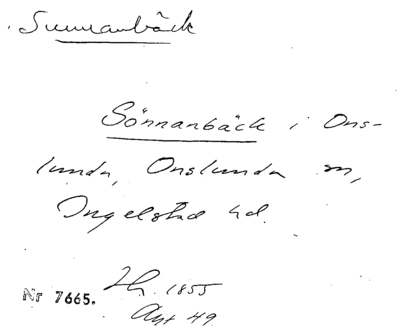 Sunnanbäck
Sönnanbäck i Ons-
lunda, Onslunda sn,
Ingelstad hd.
Nr 7665. Lh. 1855
Akt 49